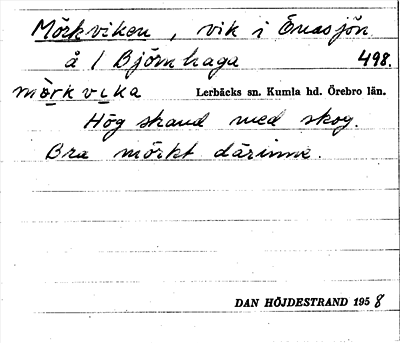 Mörkviken, vik i Enasjön
å 1 Björnhaga 498.
mö̀rkvịka Lerbäcks sn. Kumla hd. Örebro län.
Hög strand med skog.
Bra mörkt därinne.
DAN HÖJDESTRAND 1958